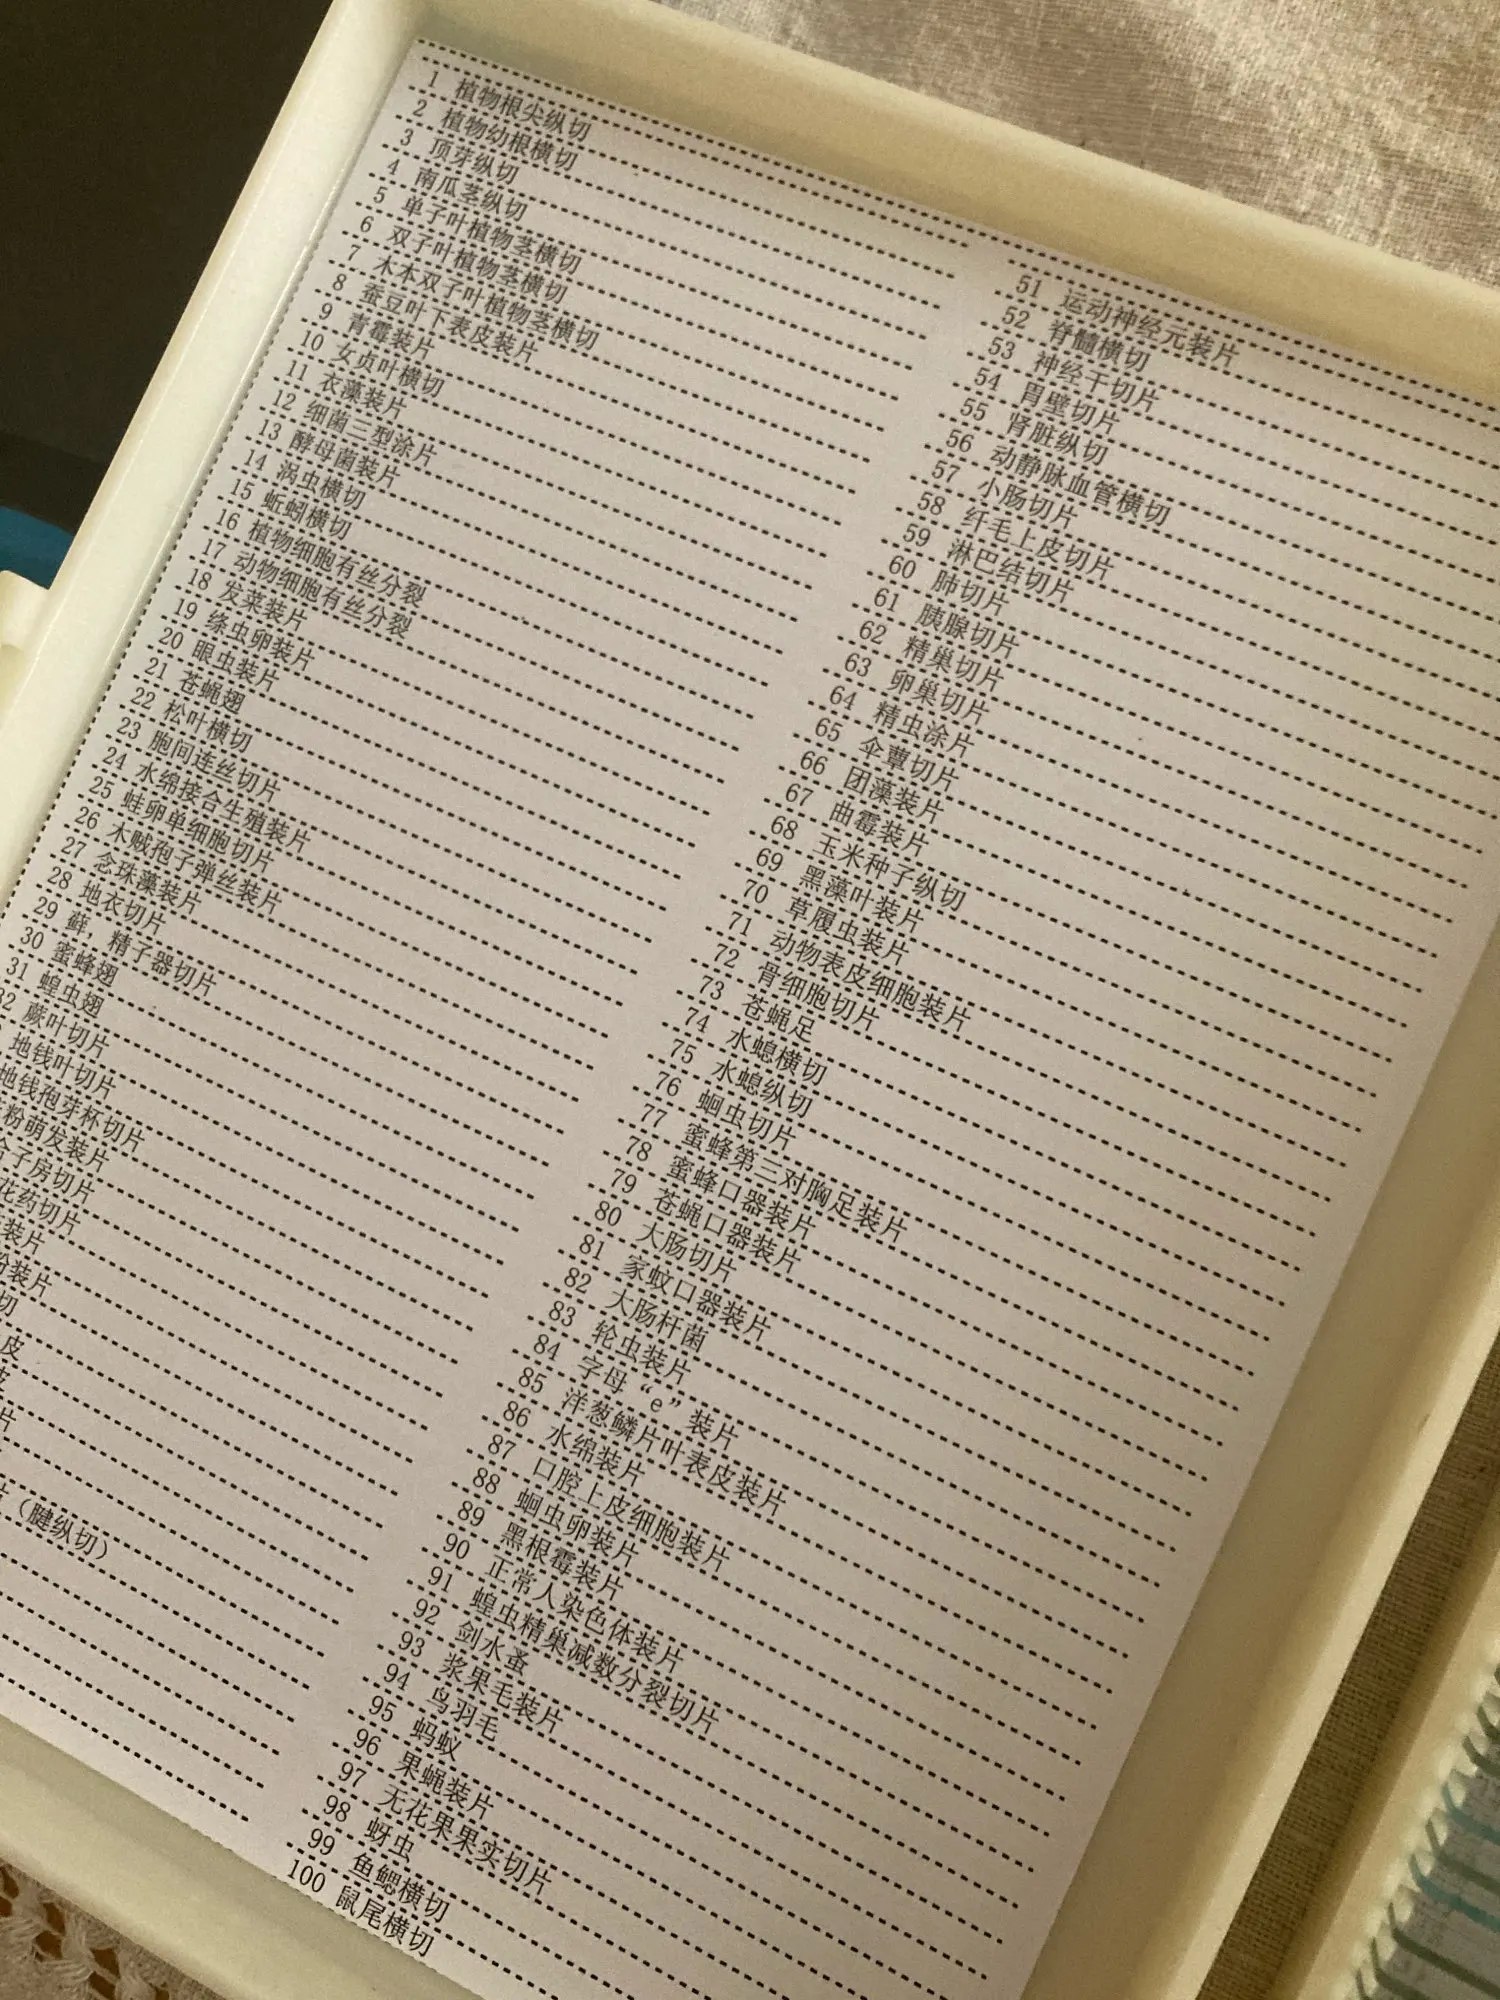 1 植物根尖纵切
2 植物幼根横切
3 顶芽纵切
4 南瓜茎纵切
5 单子叶植物茎横切
6 双子叶植物茎横切
7 木本双子叶植物茎横切
8 蚕豆叶下表皮装片
9 青霉装片
10 女贞叶横切
11 衣藻装片
12 细菌三型涂片
13 酵母菌装片
14 涡虫横切
15 蚯蚓横切
16 植物细胞有丝分裂
17 动物细胞有丝分裂
18 发菜装片
19 绦虫卵装片
20 眼虫装片
21 苍蝇翅
22 松叶横切
23 胞间连丝切片
24 水绵接合生殖装片
25 蛙卵单细胞切片
26 木贼孢子弹丝装片
27 念珠藻装片
28 地衣切片
29 藓，精子器切片
30 蜜蜂翅
31 蝗虫翅
32 蕨叶切片
地钱叶切片
地钱孢芽杯切片
粉萌发装片
子房切片
花药切片
装片
装片
切
皮
片
（腱纵切）
51 运动神经元装片
52 脊髓横切
53 神经干切片
54 胃壁切片
55 肾脏纵切
56 动静脉血管横切
57 小肠切片
58 纤毛上皮切片
59 淋巴结切片
60 肺切片
61 胰腺切片
62 精巢切片
63 卵巢切片
64 精虫涂片
65 伞蕈切片
66 团藻装片
67 曲霉装片
68 玉米种子纵切
69 黑藻叶装片
70 草履虫装片
71 动物表皮细胞装片
72 骨细胞切片
73 苍蝇足
74 水螅横切
75 水螅纵切
76 蛔虫切片
77 蜜蜂第三对胸足装片
78 蜜蜂口器装片
79 苍蝇口器装片
80 大肠切片
81 家蚊口器装片
82 大肠杆菌
83 轮虫装片
84 字母“e”装片
85 洋葱鳞片叶表皮装片
86 水绵装片
87 口腔上皮细胞装片
88 蛔虫卵装片
89 黑根霉装片
90 正常人染色体装片
91 蝗虫精巢减数分裂切片
92 剑水蚤
93 浆果毛装片
94 鸟羽毛
95 蚂蚁
96 果蝇装片
97 无花果果实切片
98 蚜虫
99 鱼鳃横切
100 鼠尾横切